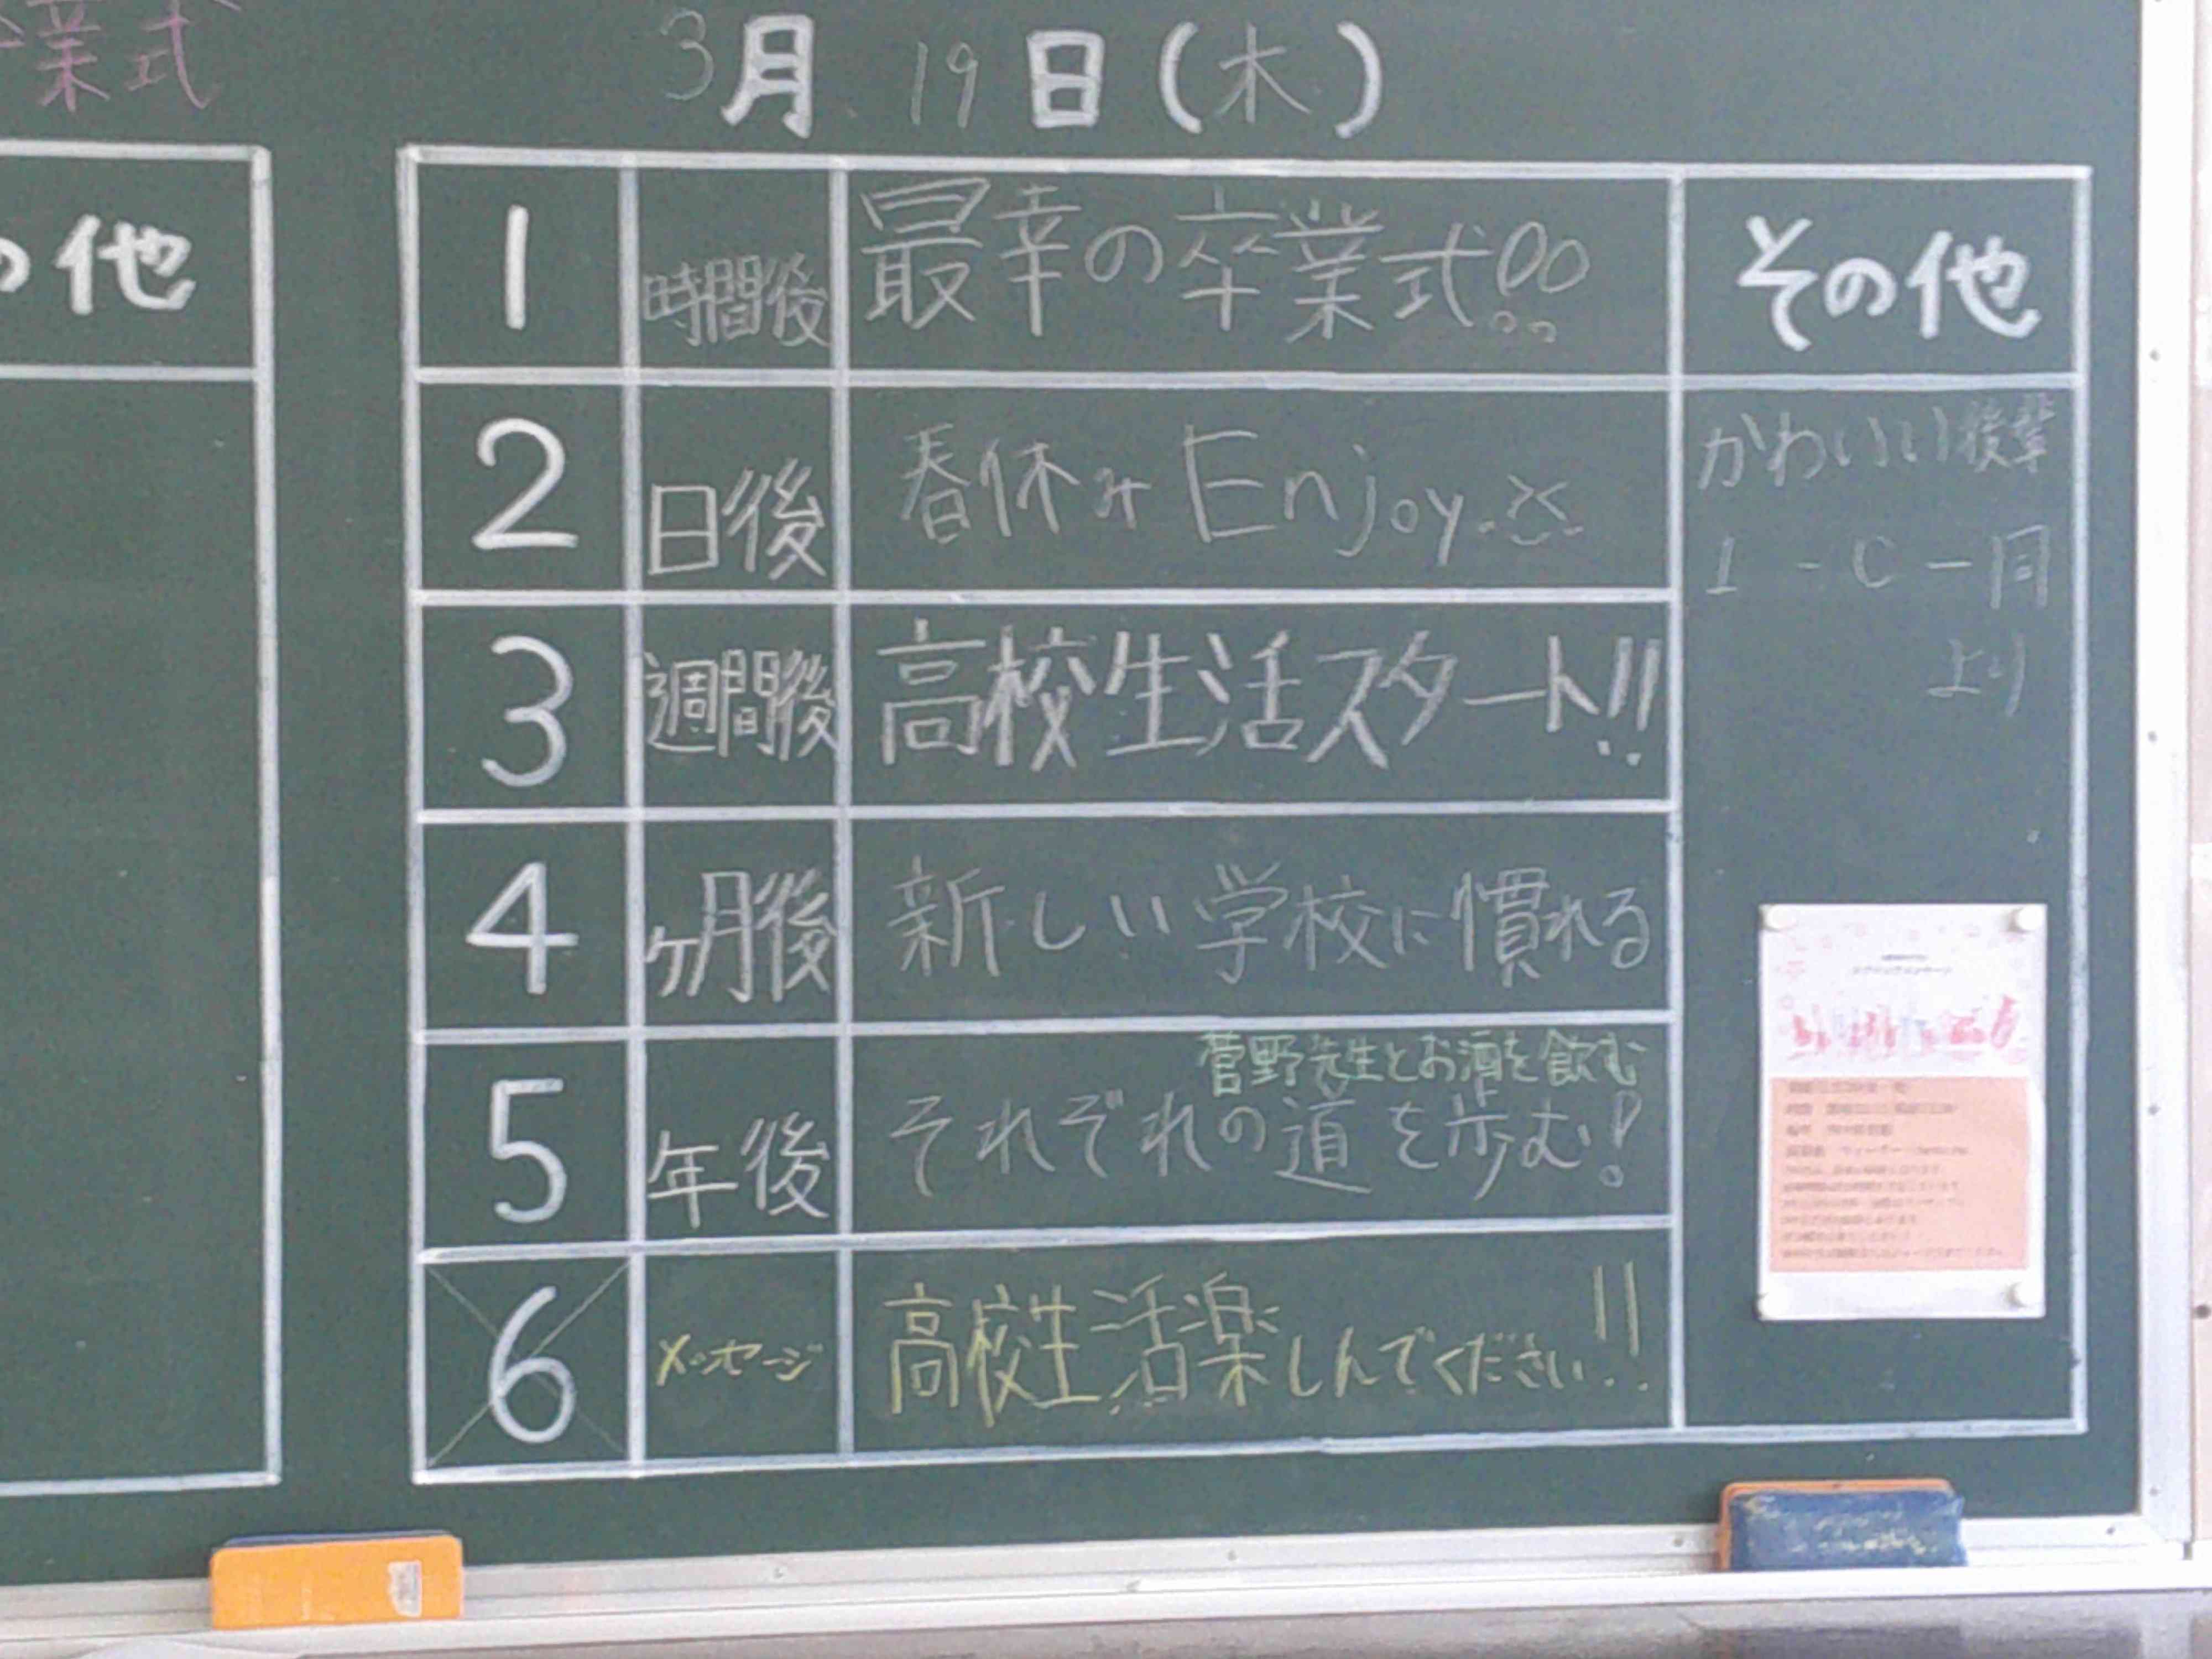 業式
の他
3月19日(木)
1 時間後 最幸の卒業式!!
その他
2 日後 春休みEnjoy
3 週間後 高校生活スタート!!
4 ヶ月後 新しい学校に慣れる
菅野先生とお酒を飲む
5 年後 それぞれの道を歩む!
6 メッセージ 高校生活楽しんでください!!
かわいい後輩
1-C一同
より